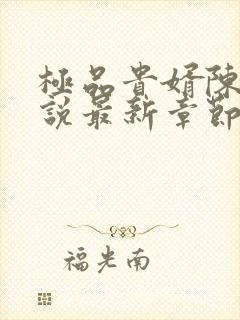 極品貴婿陳
說最新章節
福光南